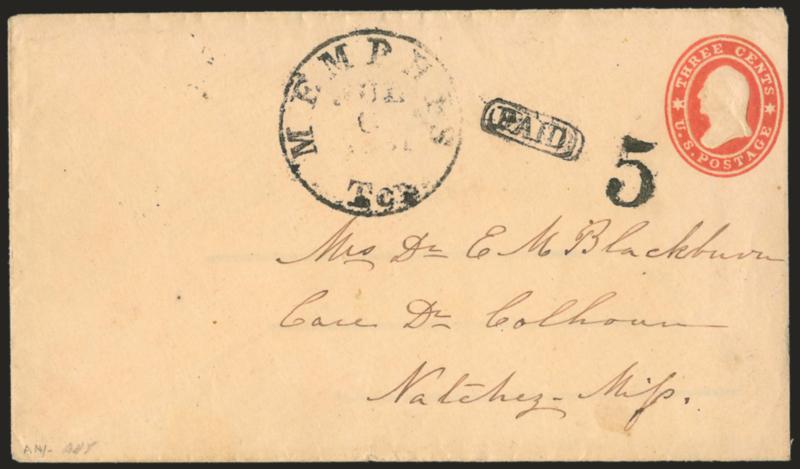 MEMPHIS
JUL
Ten.
PAID
5
THREE CENTS
U.S. POSTAGE
Mrs Dr E M Blackburn
Care Dr Colhoun
Natchez - Miſs.